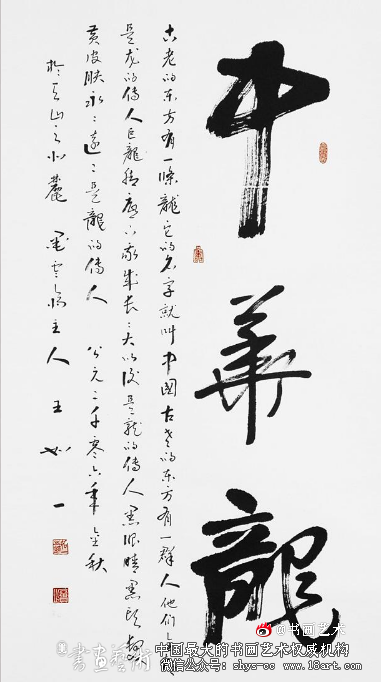 中華龍
古老的东方有一條龍它的名字就叫中國古老的东方有一群人他们全都
是龙的傳人巨龍脚底下我成长〻大以後是龍的傳人黑眼睛黑头发
黄皮肤永〻遠〻是龍的傳人 公元二千零六年金秋
於天山之北麓 主人 王如一
@书画艺术
書画藝術
中国最大的书画艺术权威机构
微信公众号: shys-cc www.18art.com